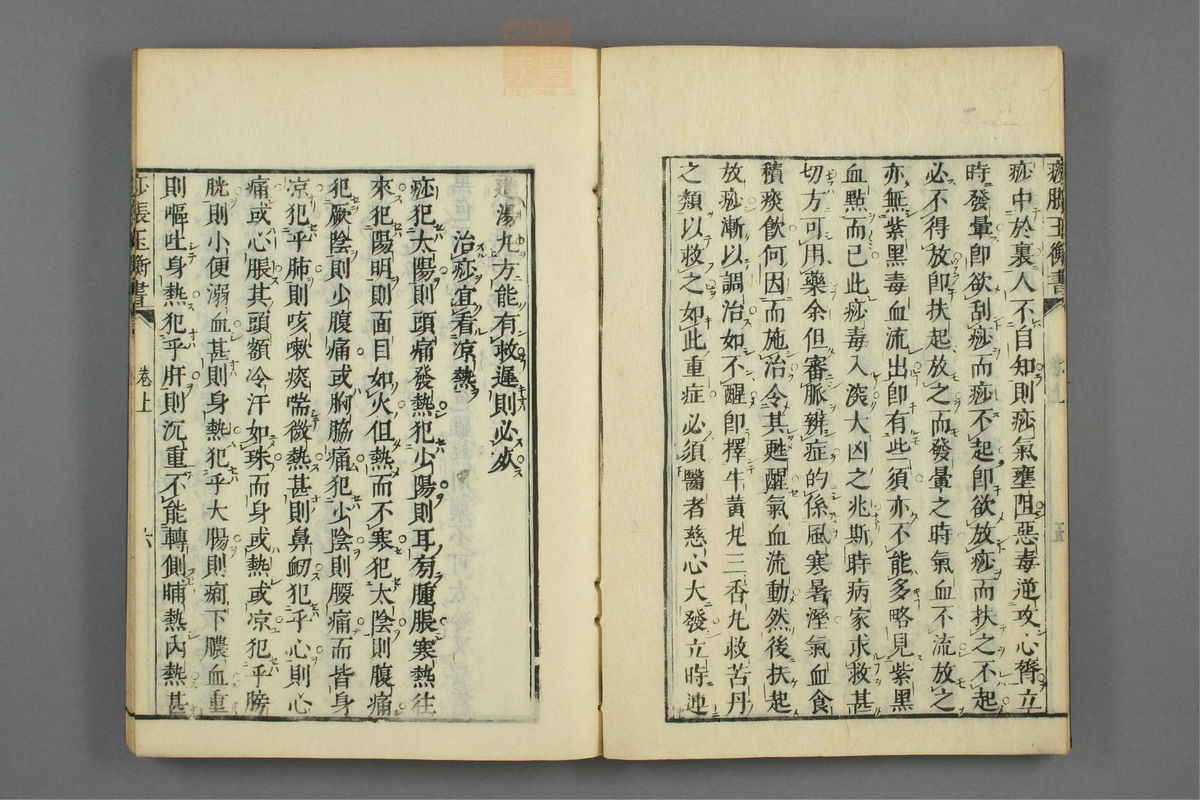 痧脹玉衡書
痧中於裏人不自知則痧氣壅阻惡毒逆攻心膂立
時發暈卽欲刮痧而痧不起卽欲放痧而扶之不起
必不得放卽扶起放之而發暈之時氣血不流放之
亦無紫黑毒血流出卽有些須亦不能多略見紫黑
血點而已此痧毒入深大凶之兆斯時病家求救甚
切方可用藥余但審脈辨症的係風寒暑溼氣血食
積痰飲何因而施治令其甦醒氣血流動然後扶起
放痧漸以調治如不醒卽擇牛黃丸三香丸救苦丹
之類以救之如此重症必須醫者慈心大發立時連
五
湯丸方能有救遲則必死
治痧宜看凉熱
痧犯太陽則頭痛發熱犯少陽則耳有腫脹寒熱往
來犯陽明則面目如火但熱而不寒犯太陰則腹痛
犯厥陰則少腹痛或胸脇痛犯少陰則腰痛而皆身
凉犯乎肺則咳嗽痰喘微熱甚則鼻衂犯乎心則心
痛或心脹其頭額冷汗如珠而身或熱或凉犯乎膀
胱則小便溺血甚則身熱犯乎大腸則痢下膿血重
則嘔吐身熱犯乎肝則沉重不能轉側晡熱內熱甚
痧脹玉衡書
卷上
六
zysj.com.cn